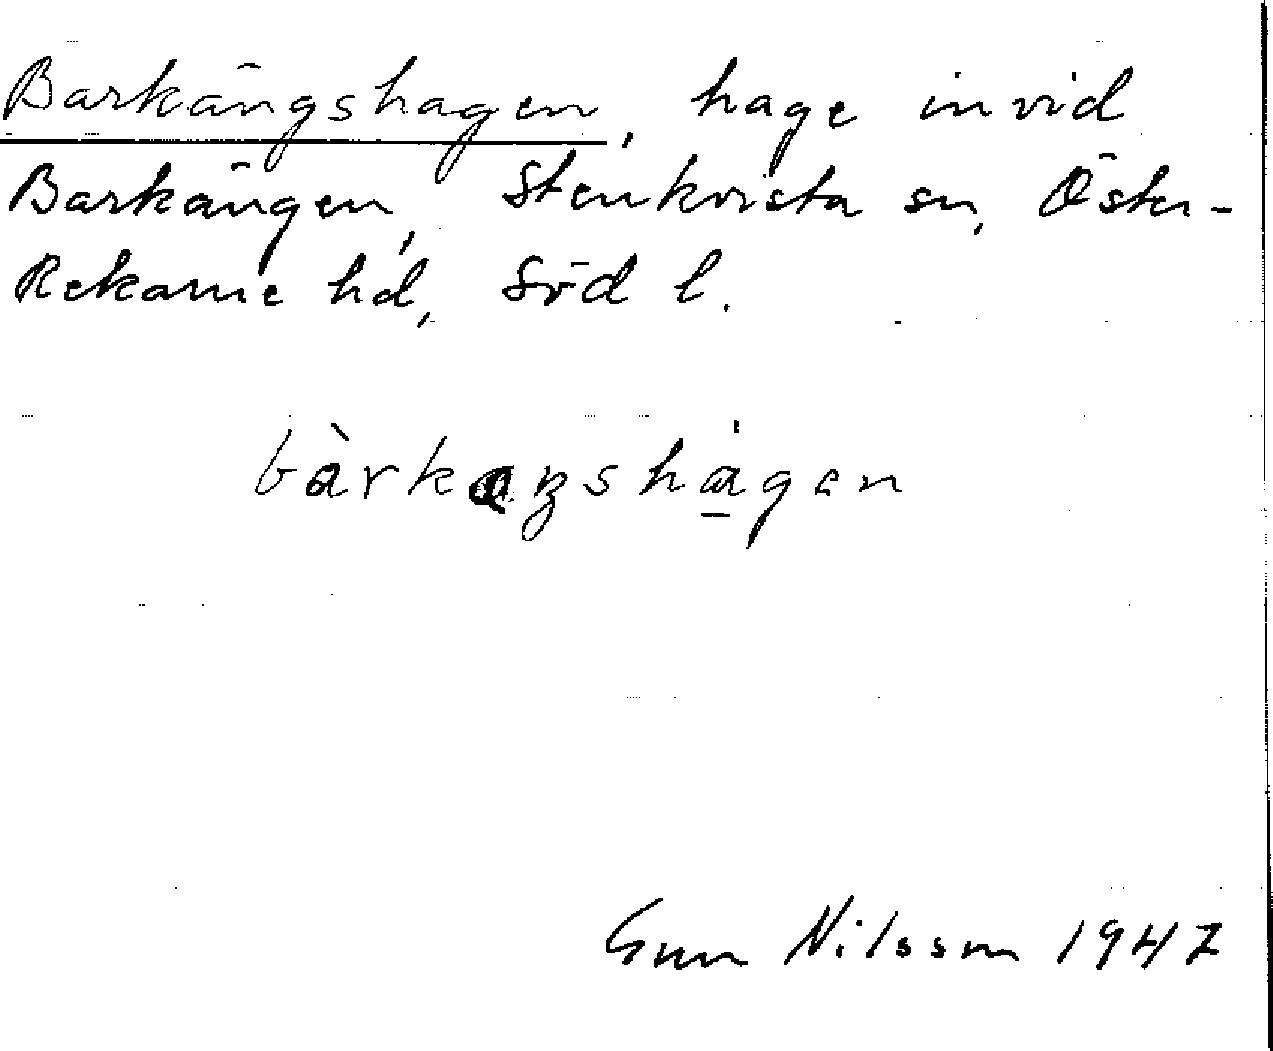 Barkängshagen, hage invid
Barkängen, Stenkvista sn, Öster-
Rekarne hd, Söd l.
bàrkaŋshágen
Gun Nilsson 1947